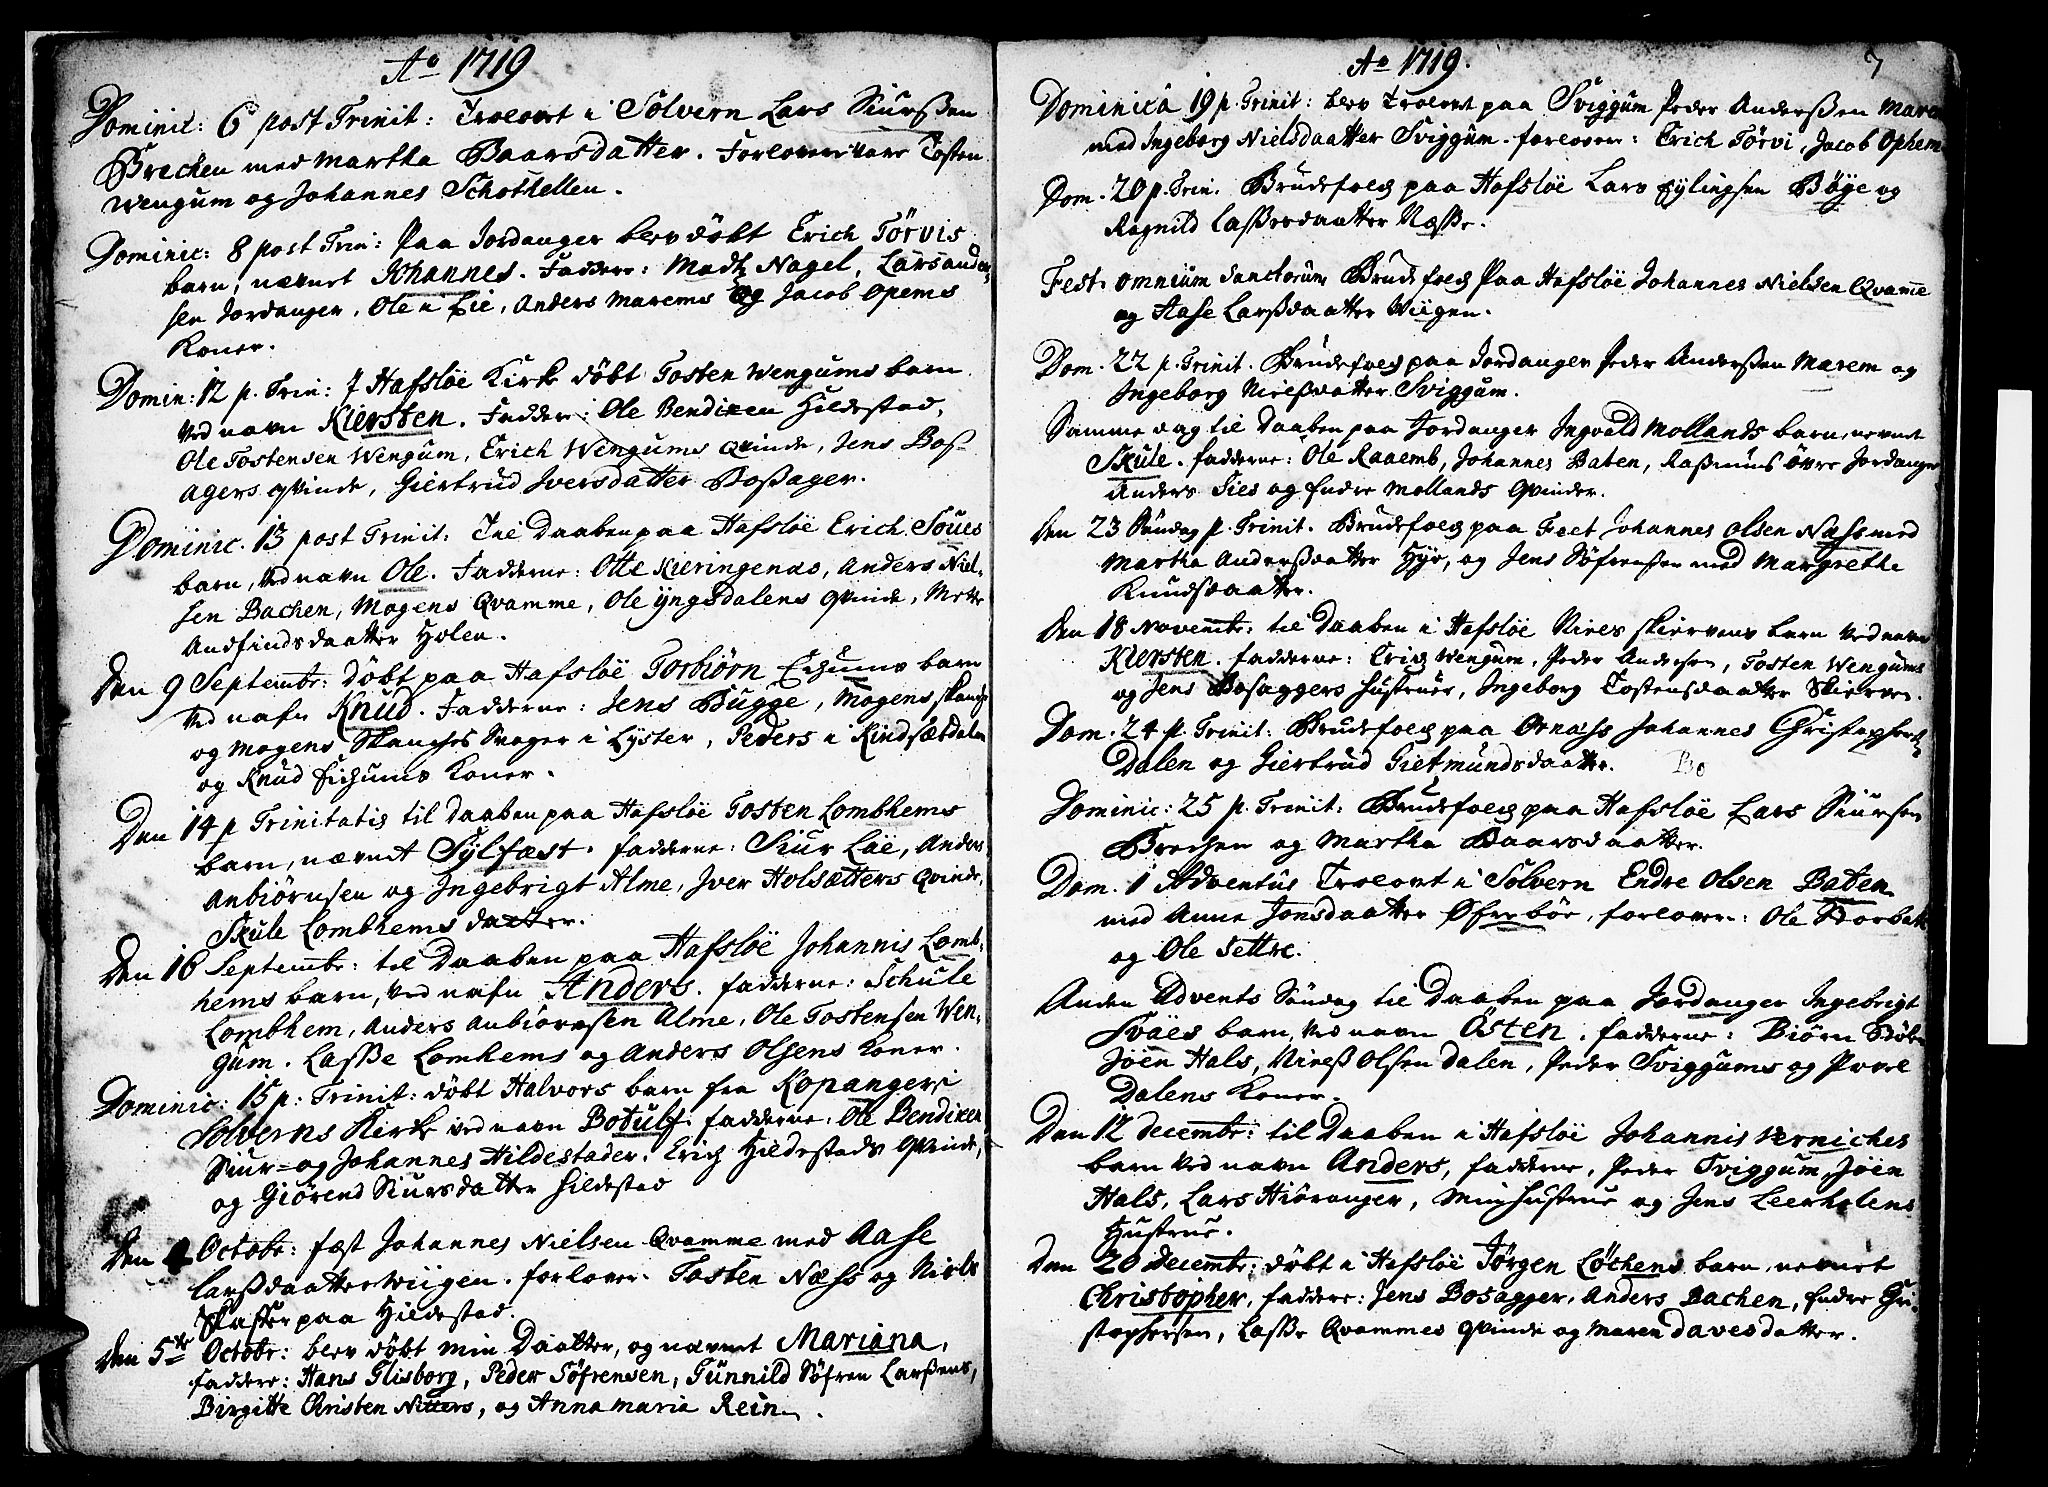 Ao 1719
Dominic: 6 post Trinit: Troelovt i Solvern Lars Siurßen
Brechen med Martha Baarsdatter. Forlovere vare Tosten
Wengum og Johannes Schothellen.
Dominic: 8 post Trin: Paa Jordanger blev døbt Erich Tørvis
barn, nævnet Johannes. Faddere: Madtz Nagel, Lars ander-
sen Jordanger, Ole i Lie, Anders Marems og Jacob Opems
Koner.
Domin: 12 p. Trin: J Hafsløe Kirke døbt Tosten Wengums barn
Ved navn Kiersten. Faddere: Ole Bendixen Hildestad,
Ole Tostensen Wengum, Erich Wengums qvinde, Jens Boß-
agers qvinde, Giertrud Iversdatter Boßager.
Dominic. 13 post Trinit: Til Daaben paa Hafsløe Erich Soues
barn, Ved navn Ole. Fadderne: Otte Kieringenas, Anders Niel-
sen Bachen, Mogens Qvamme, Ole yngsdalens qvinde, Mette
Andfindsdaatter Holen.
Den 9 Septembr: døbt paa Hafsløe Torbiørn Eichums barn
Ved nafn Knud. Fadderne: Jens Bugge, Mogens Skanche
og Mogens Skanches Svoger i Lyster, Peders i Kindsætdalen
og Knud Eichums Koner.
Den 14 p Trinitatis til daaben paa Hafsløe Tosten Lombhems
barn, nævnt Sylfæst. fadderne: Siur Löe, Anders
Anbiørnsen og Ingebrigt Alme, Iver Holsætters qvinde,
Skule Lombhems daatter.
Den 16 Septembr: til Daaben paa Hafsløe Johannis Lomb-
hems barn, Ved nafn Anders. fadderne: Schule
Lombhem, Anders Anbiørnsen Alme, Ole Tostensen Wen-
gum. Lasse Lomhems og Anders Olsens Koner.
Dominic: 15 p: Trinit: døbt Halvors barn fra Kopanger i
Solverns Kirke ved navn Botulf. fadderne: Ole Bendixen
Siur= og Johannes Hildestader. Erich Hildestads qvinde,
og Giørend Siursdatter Hildestad
Den 4 Octobr: fæst Johannes Nielsen Qvamme med Aase
Larßdaatter Wiigen. forlover. Tosten Næss og Niels
Skasser paa Hildestad.
Den 5te Octobr: blev døbt min Daatter, og nævnet Mariana,
faddere: Hans Flisborg, Peder Söfrensen, Gunnild Söfren Larßens,
Birgitte Christen Nitters, og Anna maria Rein.
Ao 1719.
7
Dominica 19 p. Trinit: blev Troelovet paa Sviggum Peder Anderßen Marem
med Ingeborg Nielsdaatter Sviggum. forlover: Erich Tørvi, Jacob Ophem
Dom. 20 p. Trin. Brudefolch paa Hafsløe Lars Eylingsen Bøye og
Ragnild Laßesdaatter Næsse.
Fest: omnium Sanctorum Brudefolch Paa Hafsløe Johannes Nielsen Qvamme
og Aase Larßdaatter Wiigen.
Dom. 22 p. Trinit. Brudefolch paa Jordanger Peder Anderßen Marem og
Ingeborg Nielßdatter Sviggum.
Samme dag til Daaben paa Jordanger Ingvald Mollands barn, nevnet
Skule. fadderne: Ole Raaemb, Johannes Baten, Raßmus øvre Jordanger
Anders Sies og Endre Mollands Qvinder.
Den 23 Söndag p. Trinit. Brudefolch paa Feet Johannes Olsen Næss med
Martha Anderßdaatter Hye, og Jens Söfrensen med Margrethe
Knudsdaatter.
Den 18 Novembr: til Daaben i Hafsløe Niels Skiervens barn Ved navn
Kiersten. fadderne: Erich Wengum, Peder Andersen, Tosten Wengums
og Jens Bosaggers Hustruer, Ingeborg Tostensdaatter Skierven.
Dom. 24 p. Trinit: Brudefolch paa Ornæss Johannes Christophersen
Dalen og Giertrud Gietmundsdaatter.
Dominic: 25 p. Trinit: Brudefolch paa Hafsløe Lars Siursen
Brechen og Martha Baarsdaatter.
Dom. 1 Adventus Troelovt i Solvern Endre Olsen Baten
med Anne Jonsdaatter Øfrebøe, forlover: Ole Storbatt
og Ole Settre.
Anden Advents Söndag til Daaben paa Jordanger Ingebrigt
Sväes barn, Ved navn Östen. fadderne: Biørn
Jöen Hals, Nielß Olsen Dalen, Peder Sviggums og Povel
Dalens Koner.
Den 12 decembr: til Daaben i Hafsløe Johannis Verniches
barn Ved navn Anders, fadderne, Peder Sviggum, Jöen
Hals, Lars Hiöranger, Min Hustrue og Jens Leerholens
Hustrue.
Den 20 Decembr: døbt i Hafsløe Jørgen Løchens barn, nevnet
Christopher, faddere: Jens Bosagger, Anders Bachen, Endre Chri-
stophersen, Lasse Qvammes qvinde og Maren Davesdatter.